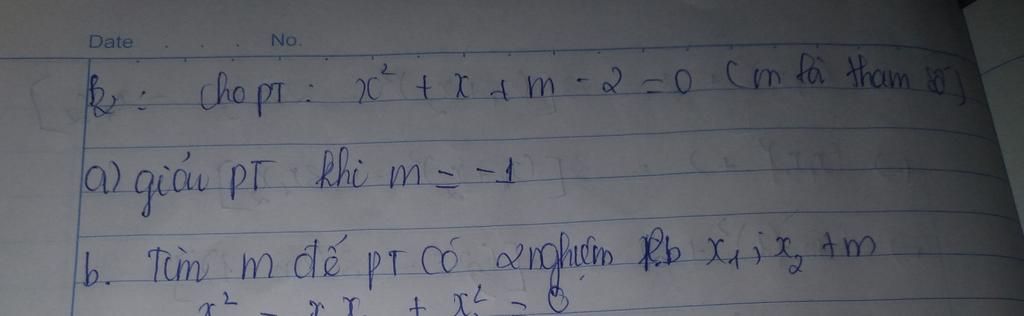 Date . . . No.
B2: Cho PT: x² + x + m - 2 = 0 (m là tham số)
a) giải PT khi m = -1
b. Tìm m để PT có 2 nghiệm pb x₁; x₂ tm